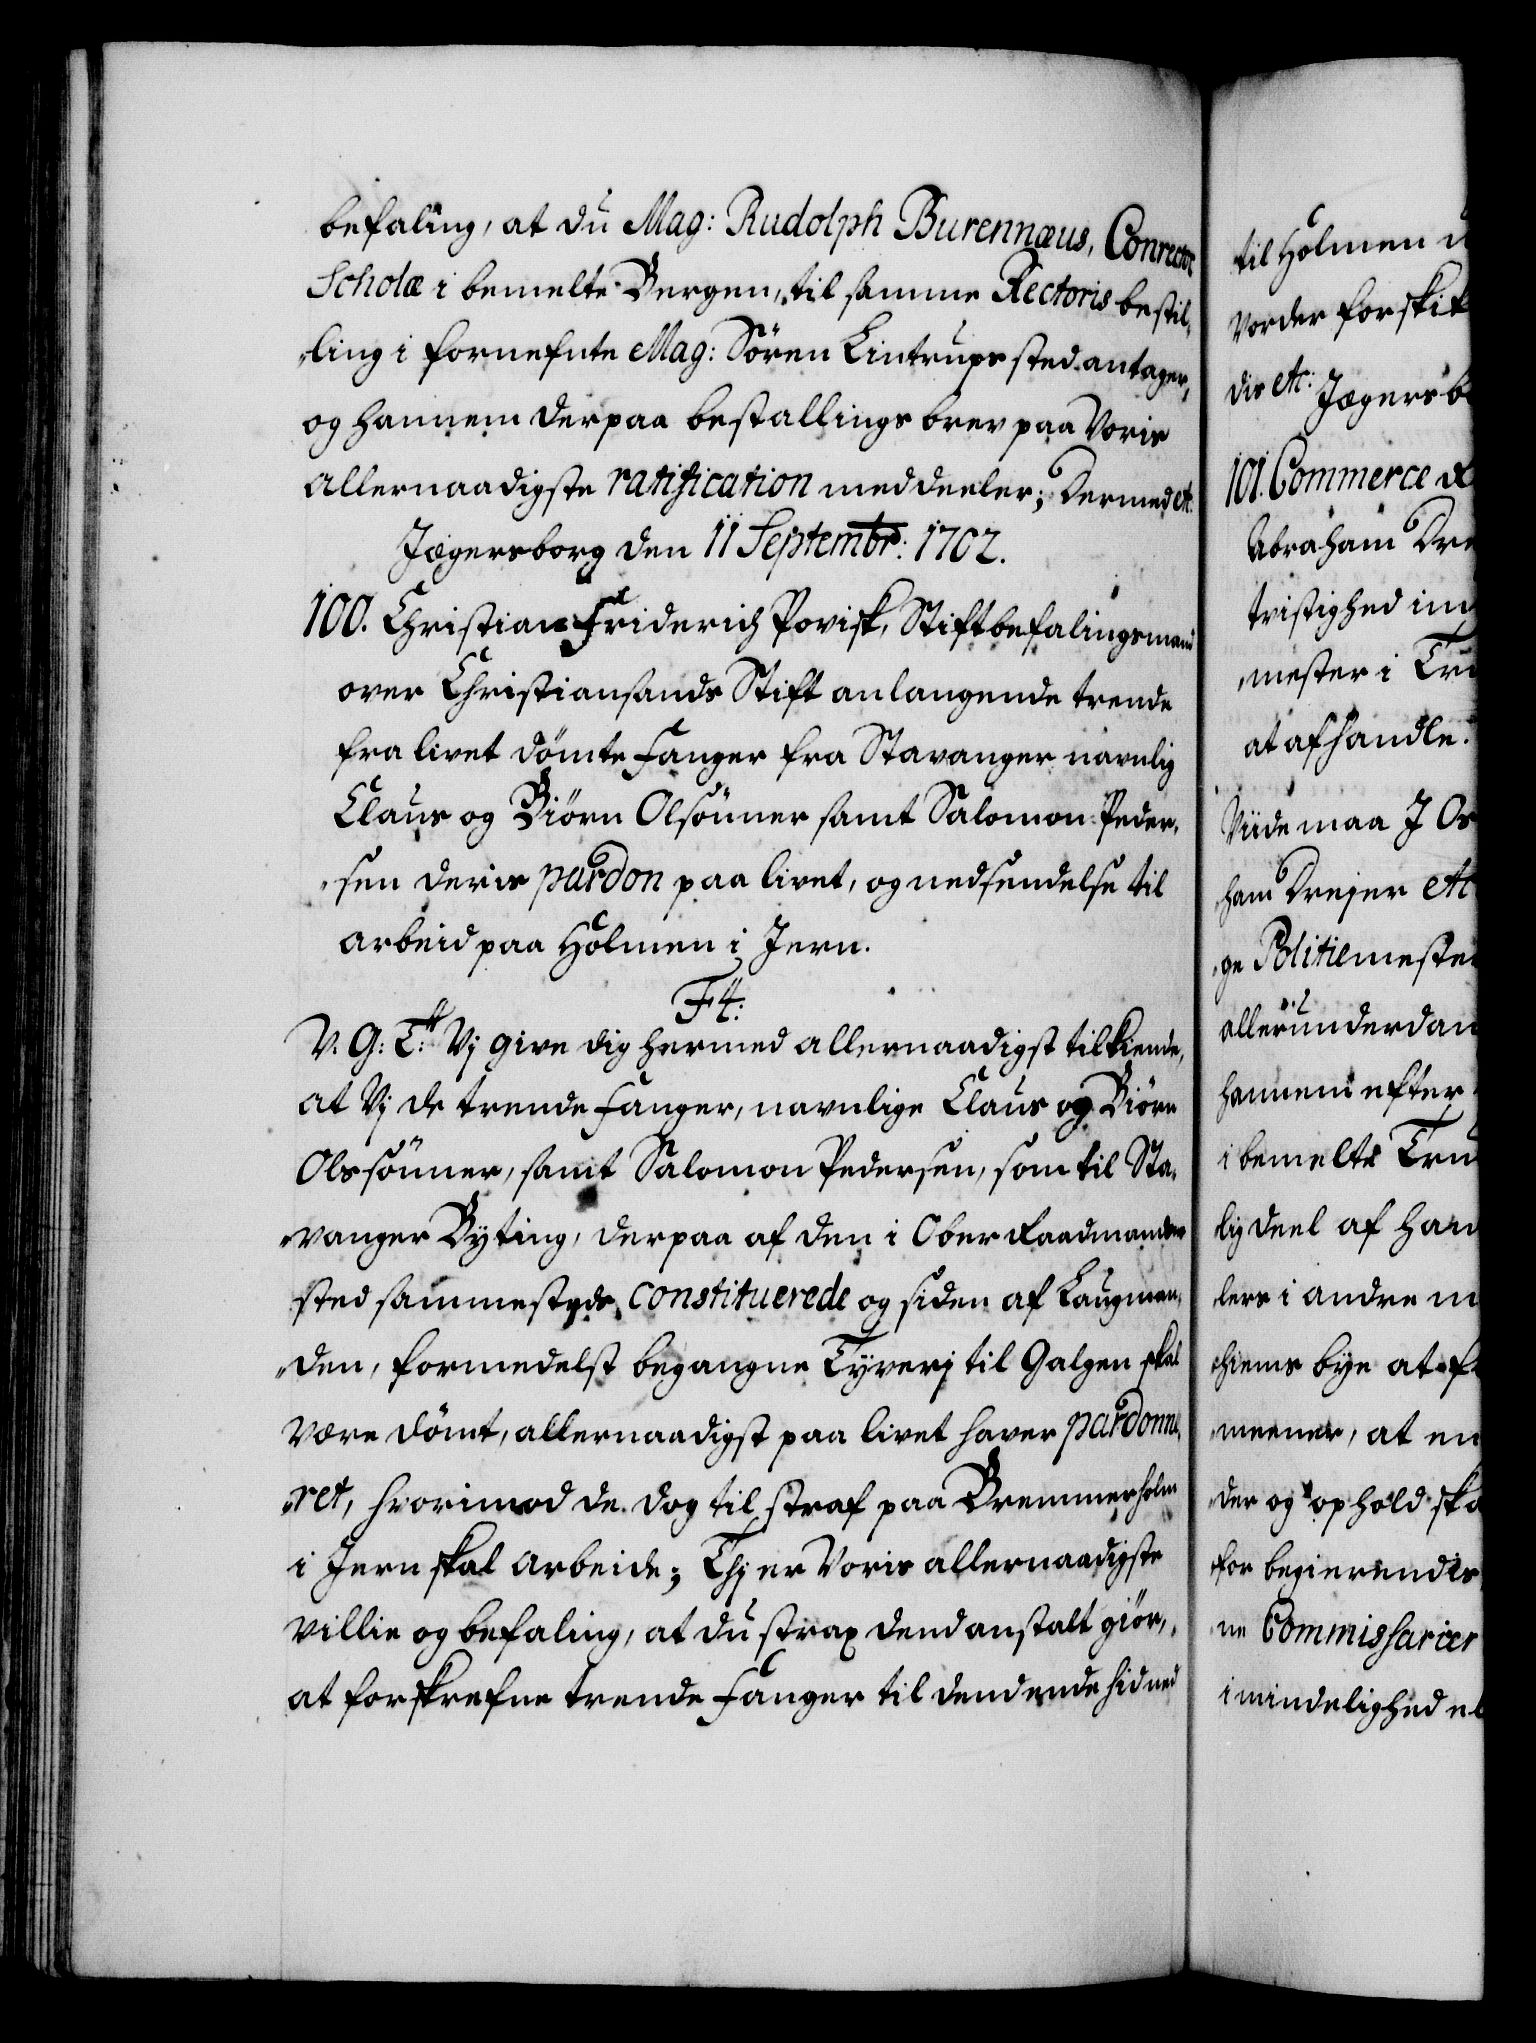 befaling, at du Mag: Rudolph Burennæus, Conrector
Scholæ i bemelte Bergen, til samme Rectoris bestil,
„ling i fornefnte Mag: Sören Lintrups sted antager,
og hannem derpaa bestallings brev paa Voris
allernaadigste ratification meddeeler; Dermed etc:
Jægersborg den 11 Septembr: 1702.
100. Christian Friderich Povisk, Stiftbefalingsmand
over Christiansands Stift anlangende trende
fra livet dömte Fanger fra Stavanger navnlig
Claus og Biörn Olsönner samt Salomon Peder,
„sen deris pardon paa livet, og nedsendelse til
arbeid paa Holmen i Jern.
F4:
V: G: T: Vj give dig hermed allernaadigst tilkiende,
at Vj de trende Fanger, navnlige Claus og Biörn
Olssönner, samt Salomon Pedersen, som til Sta,
„vanger Byting, derpaa af den i Ober Raadmandens
sted sammesteds constituerede og siden af Laugman,
„den, formedelst begangne Tyverj til Galgen skal
være dömt, allernaadigst paa livet haver pardonne,
„ret, hvorimod de dog til straf paa Bremmerholm
i Jern skal arbeide; Thj er Voris allernaadigste
villie og befaling, at du strax dend anstalt giör,
at forskrefne trende Fanger til dend ende hid ned
til Holmen
vorder forskik
dis etc: Jægersb
101. Commerce
Abraham Dre
tvistighed im
„mester i Tru
at afhandle.
Viide maa J
„ham Drejer etc
„ge Politiemeste
allerunderdan
hannem efter
i bemelte Tru
lig deel af han
lers i andre
„hiems bye at
„meener, at en
„der og ophold ska
for begierendis
„ne Commissarier
i mindelighed el